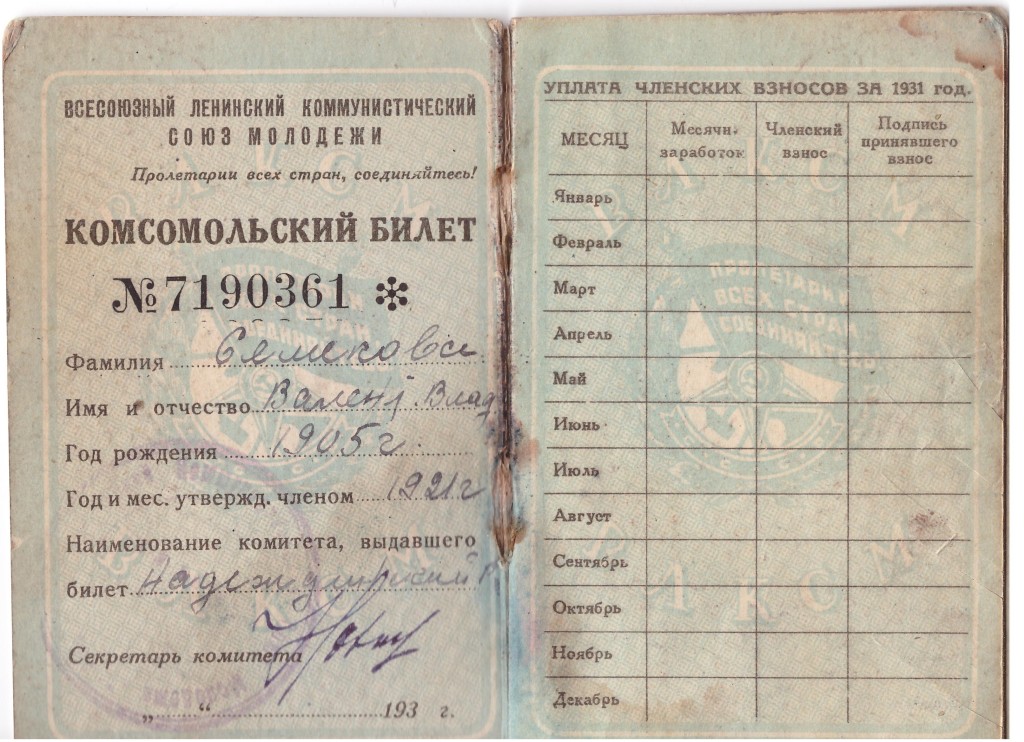 ВСЕСОЮЗНЫЙ ЛЕНИНСКИЙ КОММУНИСТИЧЕСКИЙ
СОЮЗ МОЛОДЕЖИ
Пролетарии всех стран, соединяйтесь!
КОМСОМОЛЬСКИЙ БИЛЕТ
№ 7190361 *
Фамилия Семекова
Имя и отчество Валент Влад
Год рождения 1905 г
Год и мес. утвержд. членом 1921 г
Наименование комитета, выдавшего
билет Надеждинский
Секретарь комитета
„ “ 193 г.
УПЛАТА ЧЛЕНСКИХ ВЗНОСОВ ЗА 1931 год.
МЕСЯЦ Месячн. заработок Членский взнос Подпись принявшего взнос
Январь
Февраль
Март
Апрель
Май
Июнь
Июль
Август
Сентябрь
Октябрь
Ноябрь
Декабрь
ПРОЛЕТАРИИ
ВСЕХ СТРАН
СОЕДИНЯЙ
ВЛКСМ